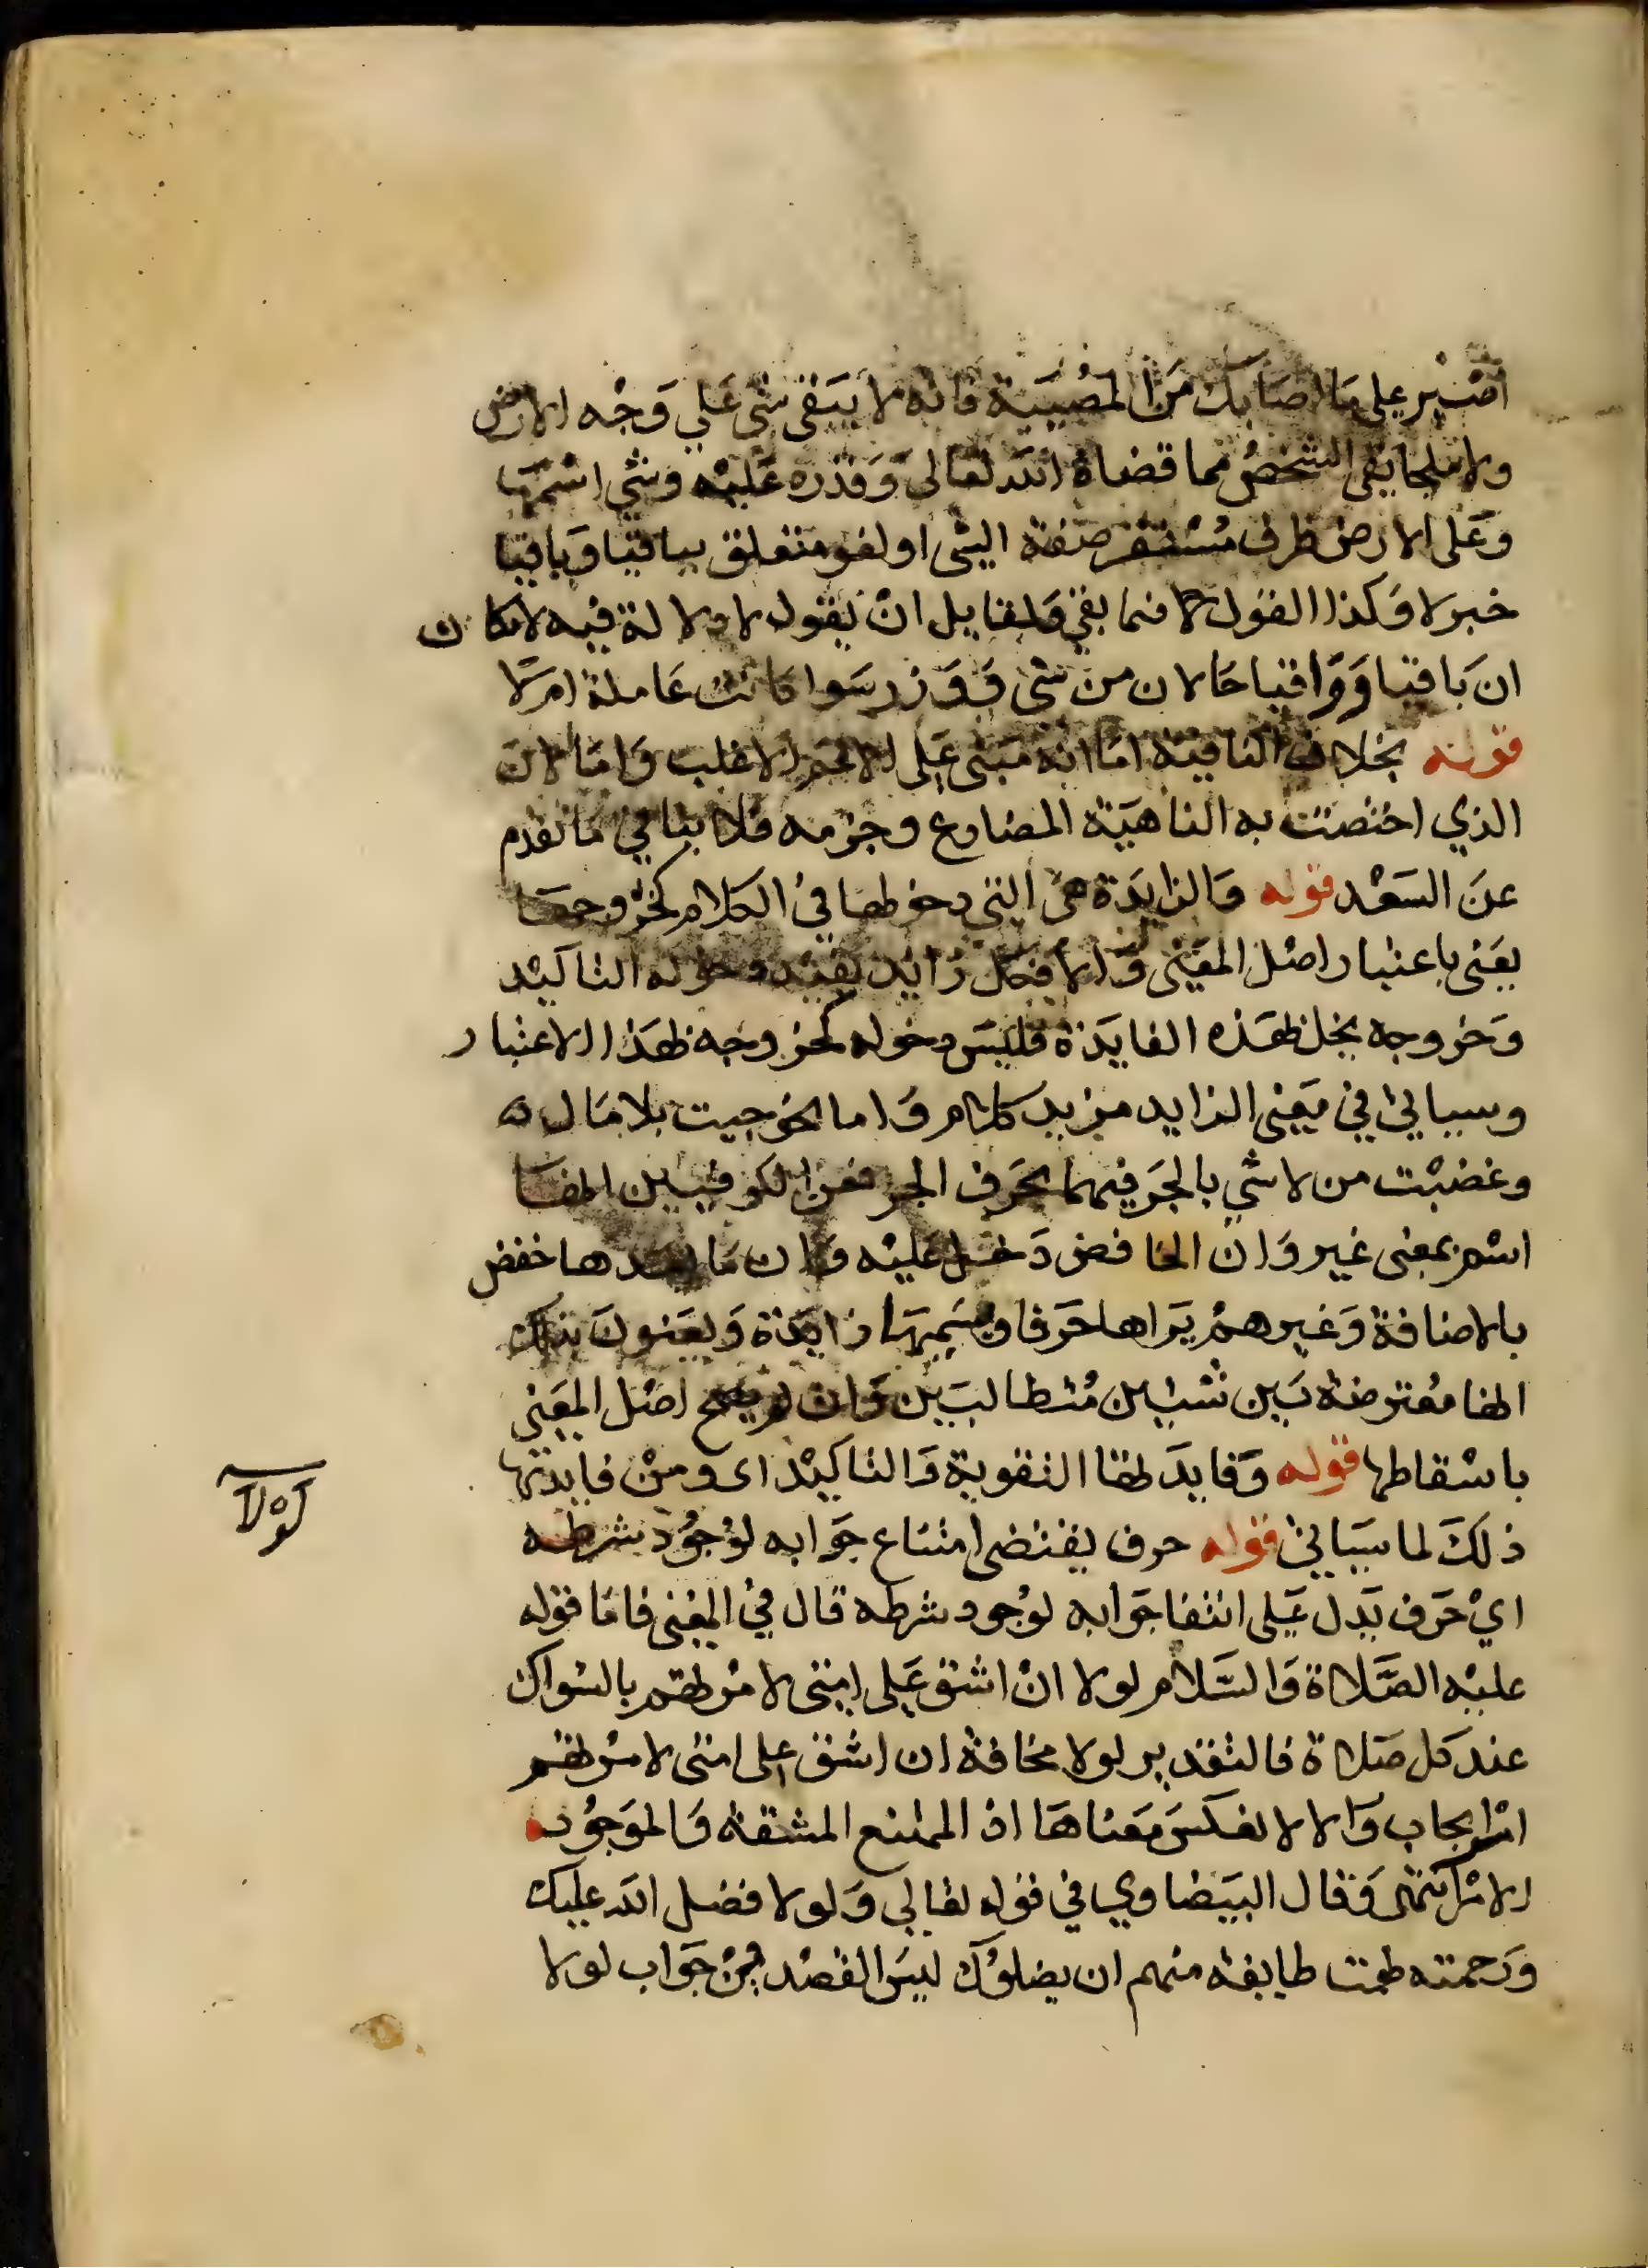 اصبر على ما اصابك من المصيبة فانه لا يبقى شي على وجه الارض
ولا ملجا يقي الشخص مما قضاه الله تعالى وقدره عليه وشي اسمها
وعلى الارض ظرف مستقر صفة الشي او لغو متعلق بباقيا وباقيا
خبر لا وكذا القول فيما بقي ولقايل ان يقول لا دلالة فيه لامكان
ان باقيا وواقيا حالان من شي ووزر سوا كانت عاملة ام لا
قوله بخلاف النافية اما انه مبني على الاعم الاغلب واما لان
الذي اختصت به الناهية المضارع وجزمه فلا ينافي ما تقدم
عن السعد قوله والزايدة هي التي دخولها في الكلام كخروجها
يعني باعتبار اصل المعنى والا فكل زايد يفيد دخوله التاكيد
وخروجه يخل بهذه الفايدة فليس دخوله كخروجه بهذا الاعتبار
وسياتي في معنى الزايد مزيد كلام واما نحو جيت بلا مال
وغضبت من لا شي بالجر فيهما بحرف الجر فعن الكوفيين انها
اسم بمعنى غير وان الخافض دخل عليه وان ما بعدها خفض
بالاضافة وغيرهم يراها حرفا ويسميها زايدة ويعنون بذلك
انها معترضة بين شيين متطالبين وان لم يصح اصل المعنى
باسقاطها قوله وفايدتها التقوية والتاكيد اى ومن فايدتها
ذلك لما سياتي قوله حرف يقتضى امتناع جوابه لوجود شرطه
لولا
اي حرف يدل على انتفا جوابه لوجود شرطه قال في المغنى فاما قوله
عليه الصلاة والسلام لولا ان اشق على امتى لامرتهم بالسواك
عند كل صلاة فالتقدير لولا مخافة ان اشق على امتى لامرتهم
امر ايجاب والا لانعكس معناها اذ الممتنع المشقة والموجود
الامر انتهى وقال البيضاوي في قوله تعالى ولولا فضل الله عليك
ورحمته لهمت طايفة منهم ان يضلوك ليس القصد من جواب لولا